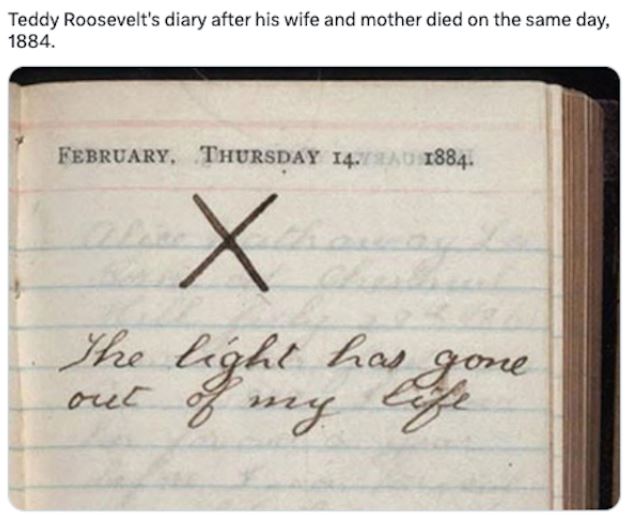 Teddy Roosevelt's diary after his wife and mother died on the same day,
1884.
FEBRUARY. THURSDAY 14. 1884.
X
The light has gone
out of my life